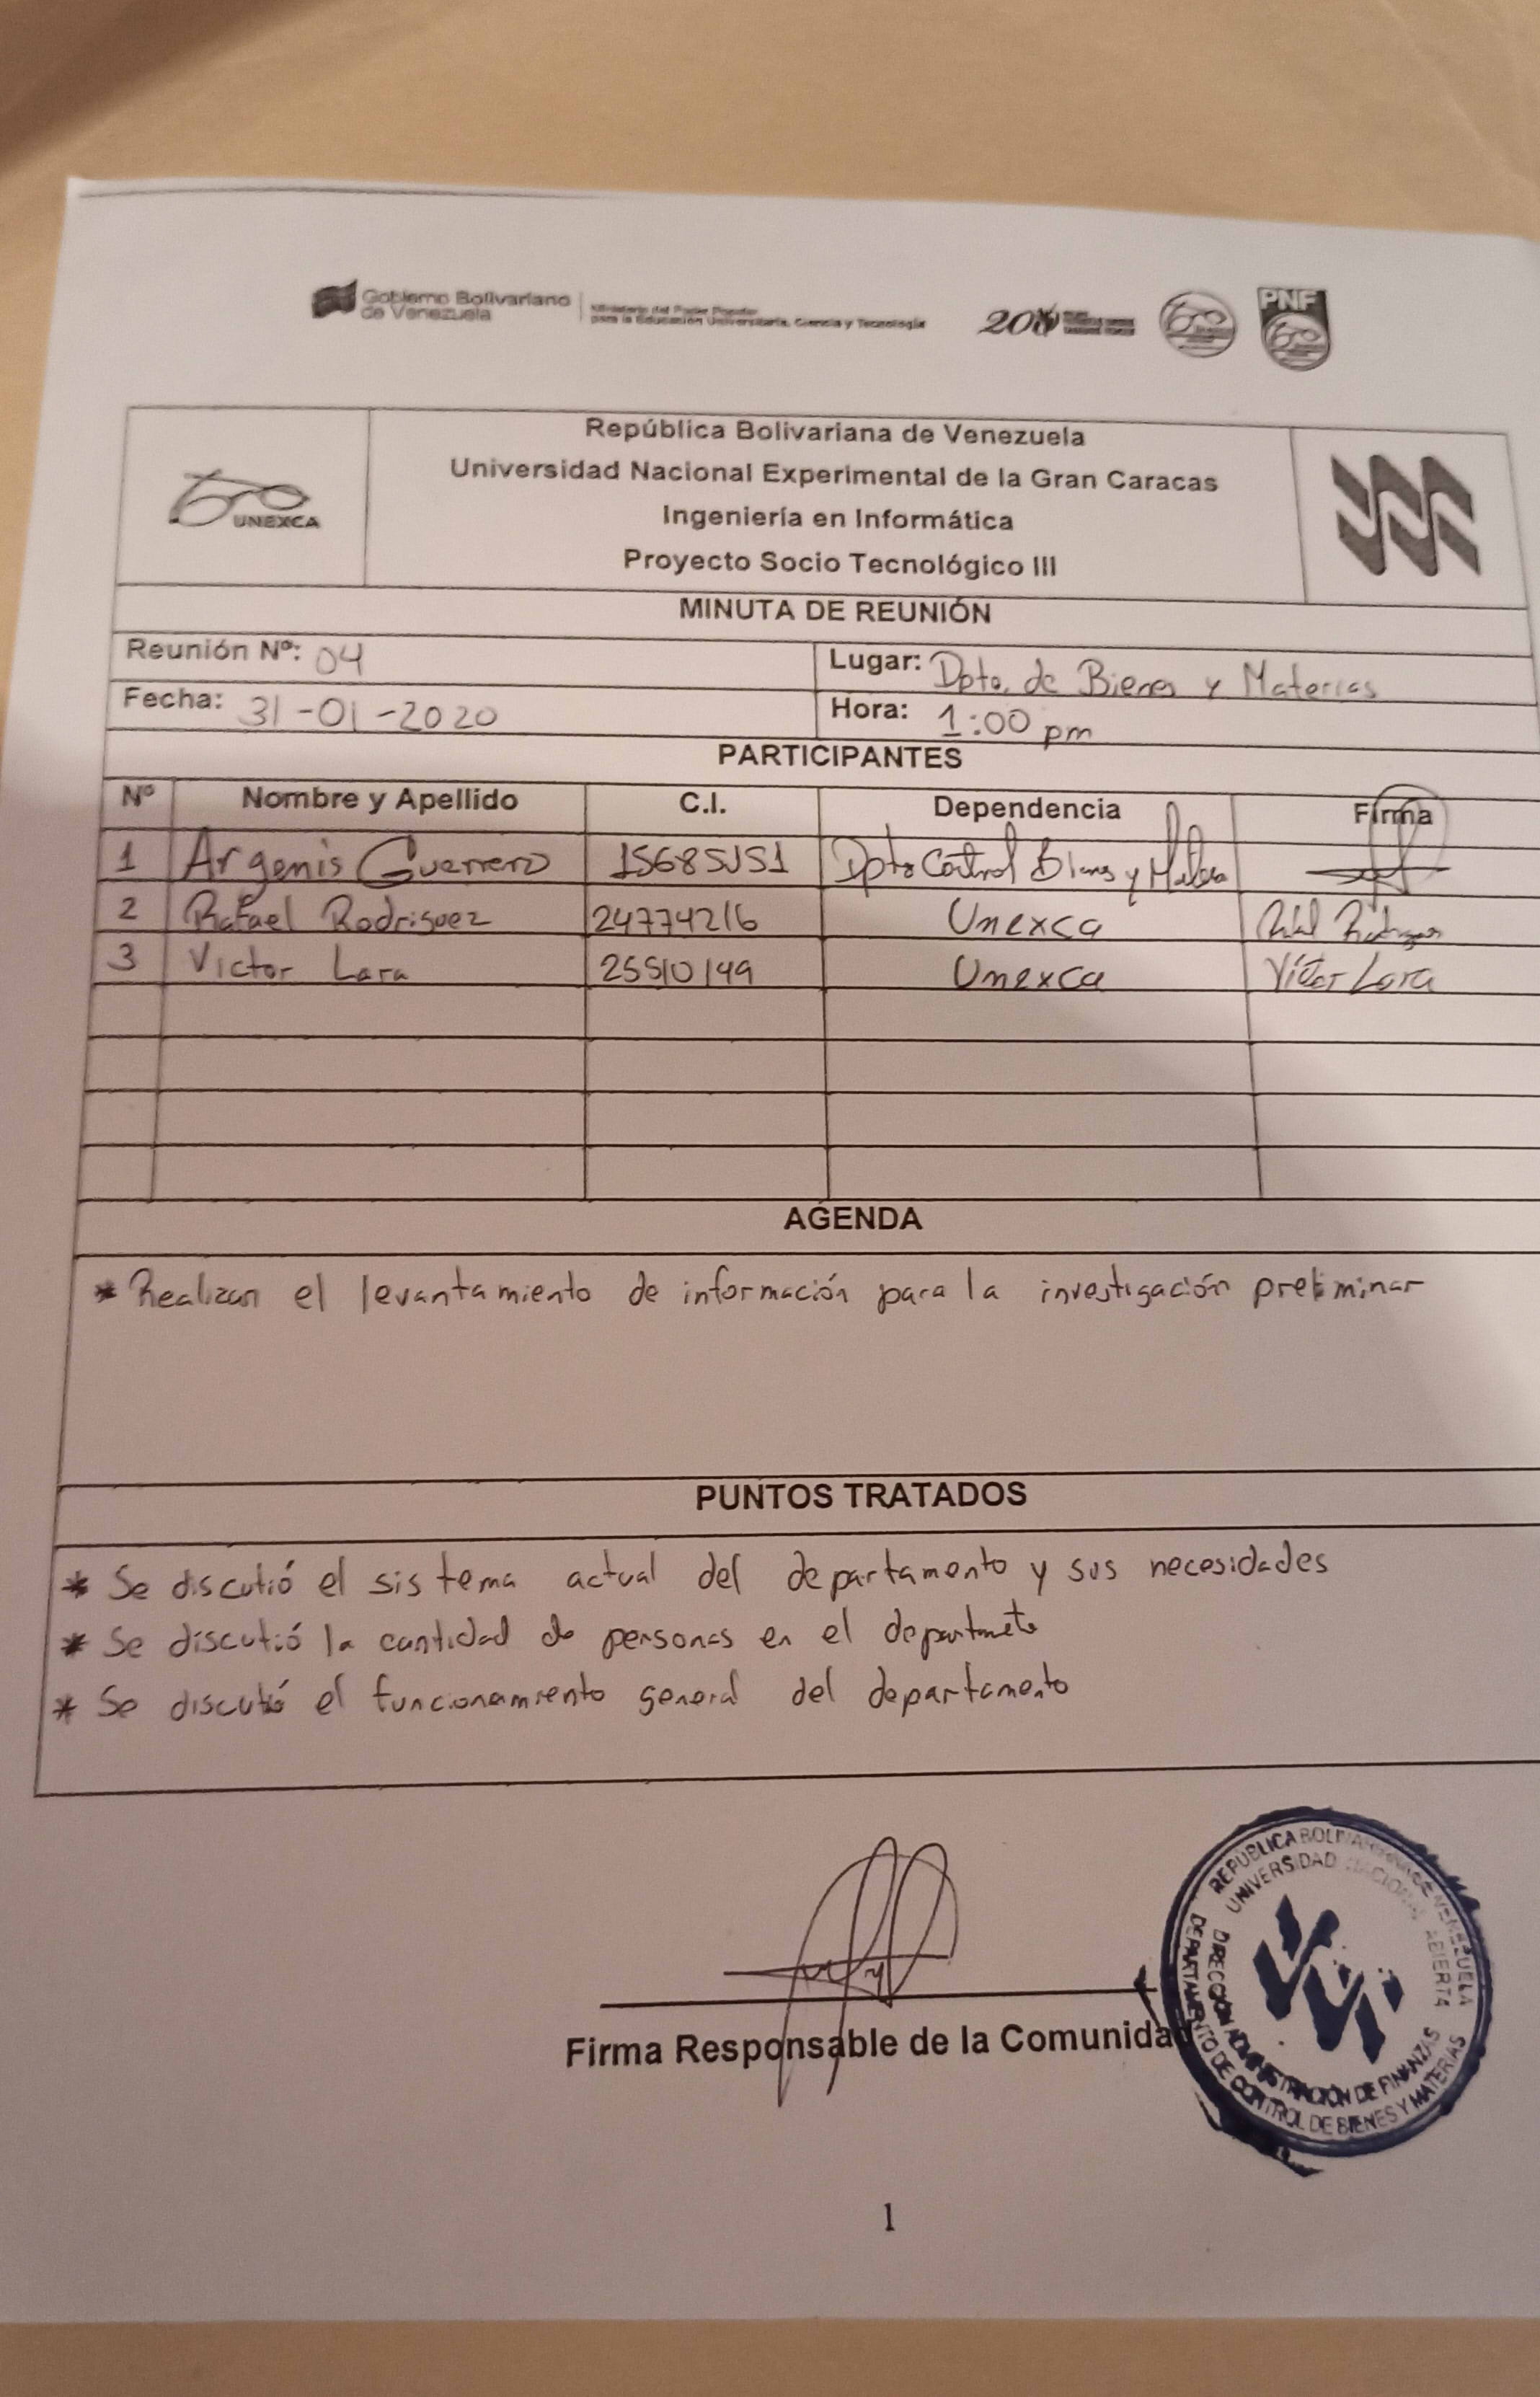 Gobierno Bolivariano de Venezuela
Ministerio del Poder Popular para la Educación Universitaria, Ciencia y Tecnología
200
PNF
UNEXCA
República Bolivariana de Venezuela
Universidad Nacional Experimental de la Gran Caracas
Ingeniería en Informática
Proyecto Socio Tecnológico III
MINUTA DE REUNIÓN
Reunión Nº: 04 Lugar: Dpto. de Bienes y Materias
Fecha: 31-01-2020 Hora: 1:00 pm
PARTICIPANTES
Nº Nombre y Apellido C.I. Dependencia Firma
1 Argenis Guerrero Dpto Control Bienes y
2 Rafael Rodriguez 24774216 Unexca
3 Victor Lara 25510149 Unexca Víctor Lara
AGENDA
* Realizar el levantamiento de información para la investigación preliminar
PUNTOS TRATADOS
* Se discutió el sistema actual del departamento y sus necesidades
* Se discutió la cantidad de personas en el departameto
* Se discutió el funcionamiento general del departamento
Firma Responsable de la Comunidad
REPUBLICA BOLIVARIANA DE VENEZUELA
UNIVERSIDAD NACIONAL ABIERTA
DIRECCIÓN ADMINISTRACIÓN DE FINANZAS
DEPARTAMENTO DE CONTROL DE BIENES Y MATERIAS
1